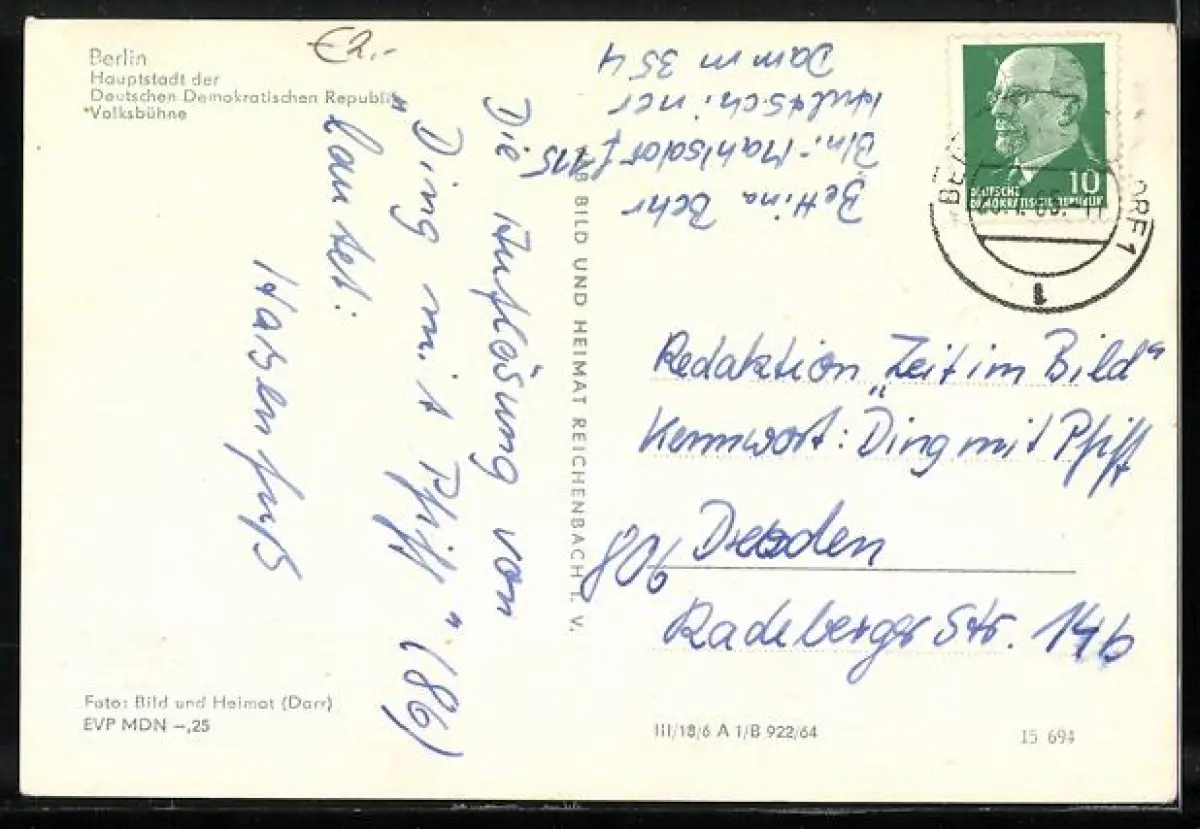 Berlin
Hauptstadt der
Deutschen Demokratischen Republik
*Volksbühne
€2,-
Die Auflösung von
"Ding mit Pfiff" (86)
lautet:
Hasenfuß
Foto: Bild und Heimat (Darr)
EVP MDN –,25
BILD UND HEIMAT REICHENBACH I. V.
Bettina Behr
Bln.-Mahlsdorf 115
Hultschiner
Damm 354
DEUTSCHE
DEMOKRATISCHE REPUBLIK
10
ORF 1
1
Redaktion „Zeit im Bild"
Kennwort: Ding mit Pfiff
806 Dresden
Radeberger Str. 14b
III/18/6 A 1/B 922/64
15 694